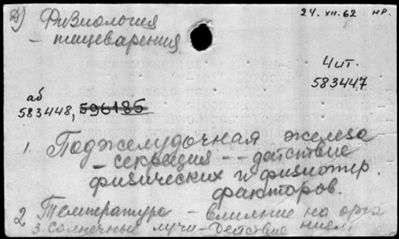 Д) Физиология
24.XII.62 нр.
- пищеварения
4 ит.
583447
аб
583448, 596185
1. Поджелудочная железа
- секреция -- действие
физических и физиотер.
факторов.
2 Температура - влияние на орга
3. Солнечные лучи - действие низм.